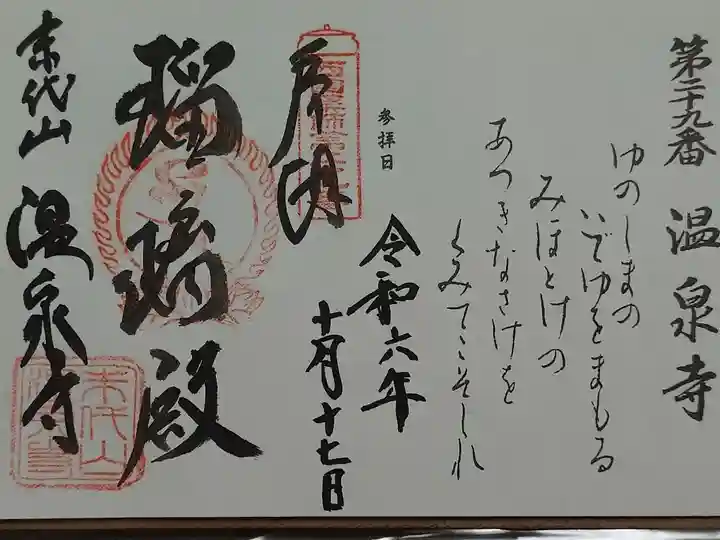 第二十九番 温泉寺
ゆのしまの
いでゆをまもる
みほとけの
あつきなさけを
くみてこそしれ
参拝日
令和六年
十月十七日
奉拝
瑠璃殿
末代山 温泉寺
末代山
温泉寺